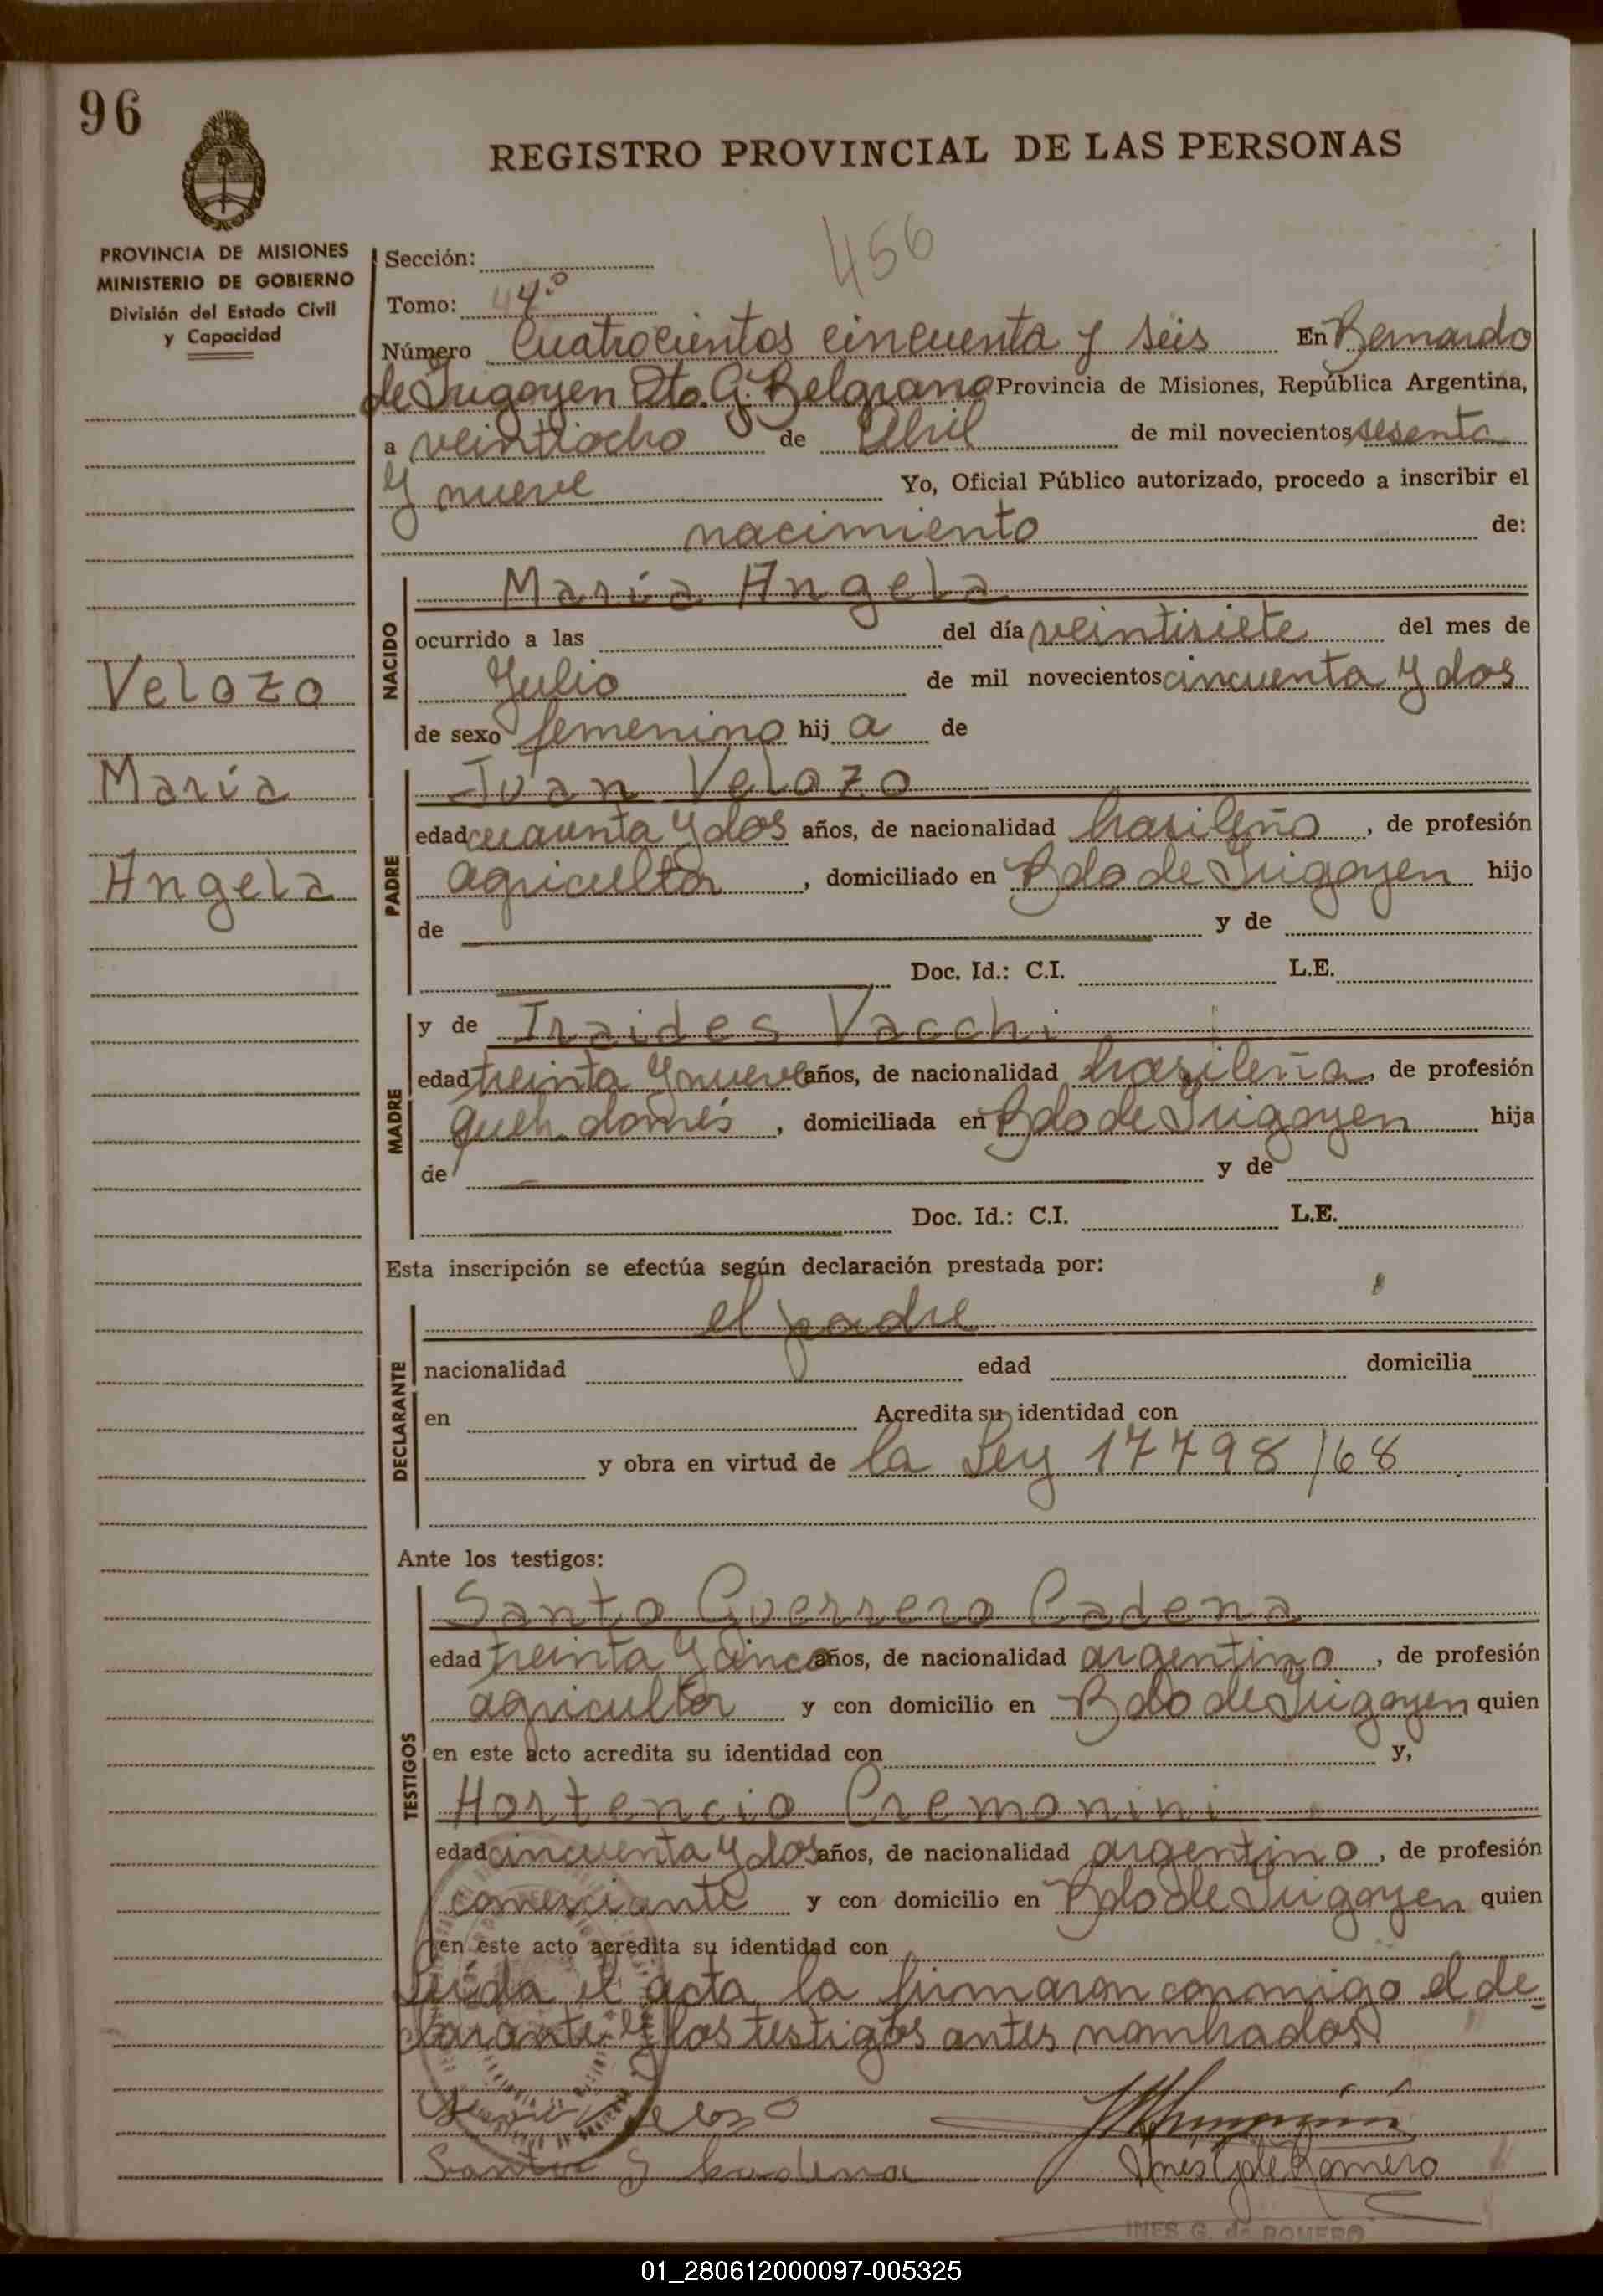 96
REGISTRO PROVINCIAL DE LAS PERSONAS
PROVINCIA DE MISIONES
MINISTERIO DE GOBIERNO
División del Estado Civil
y Capacidad
456
Sección:
Tomo: 4º
Número Cuatrocientos cincuenta y seis En Bernardo
de Irigoyen Dto. G. Belgrano Provincia de Misiones, República Argentina,
a veintiocho de Abril de mil novecientos sesenta
y nueve Yo, Oficial Público autorizado, procedo a inscribir el
nacimiento de:
Velozo
María
Angela
NACIDO
María Angela
ocurrido a las del día veintisiete del mes de
Julio de mil novecientos cincuenta y dos
de sexo femenino hij a de
PADRE
Juan Velozo
edad cuaunta y dos años, de nacionalidad brasileño, de profesión
agricultor, domiciliado en Bdo de Irigoyen hijo
de y de
Doc. Id.: C.I. L.E.
MADRE
y de Iraides Vacchi
edad treinta y nueve años, de nacionalidad brasileña, de profesión
queh. domés, domiciliada en Bdo de Irigoyen hija
de y de
Doc. Id.: C.I. L.E.
Esta inscripción se efectúa según declaración prestada por:
DECLARANTE
el padre
nacionalidad edad domicilia
en Acredita su identidad con
y obra en virtud de la Ley 17798/68
Ante los testigos:
TESTIGOS
Santo Guerrero Cadena
edad treinta y cinco años, de nacionalidad argentino, de profesión
agricultor y con domicilio en Bdo de Irigoyen quien
en este acto acredita su identidad con y,
Hortencio Cremonini
edad cincuenta y dos años, de nacionalidad argentino, de profesión
comerciante y con domicilio en Bdo de Irigoyen quien
en este acto acredita su identidad con
Leída el acta, la firmaron conmigo el de_
clarante y los testigos antes nombrados.
Velozo
Santo G Cadena Ines G de Romero
INES G. de ROMERO
01_280612000097-005325